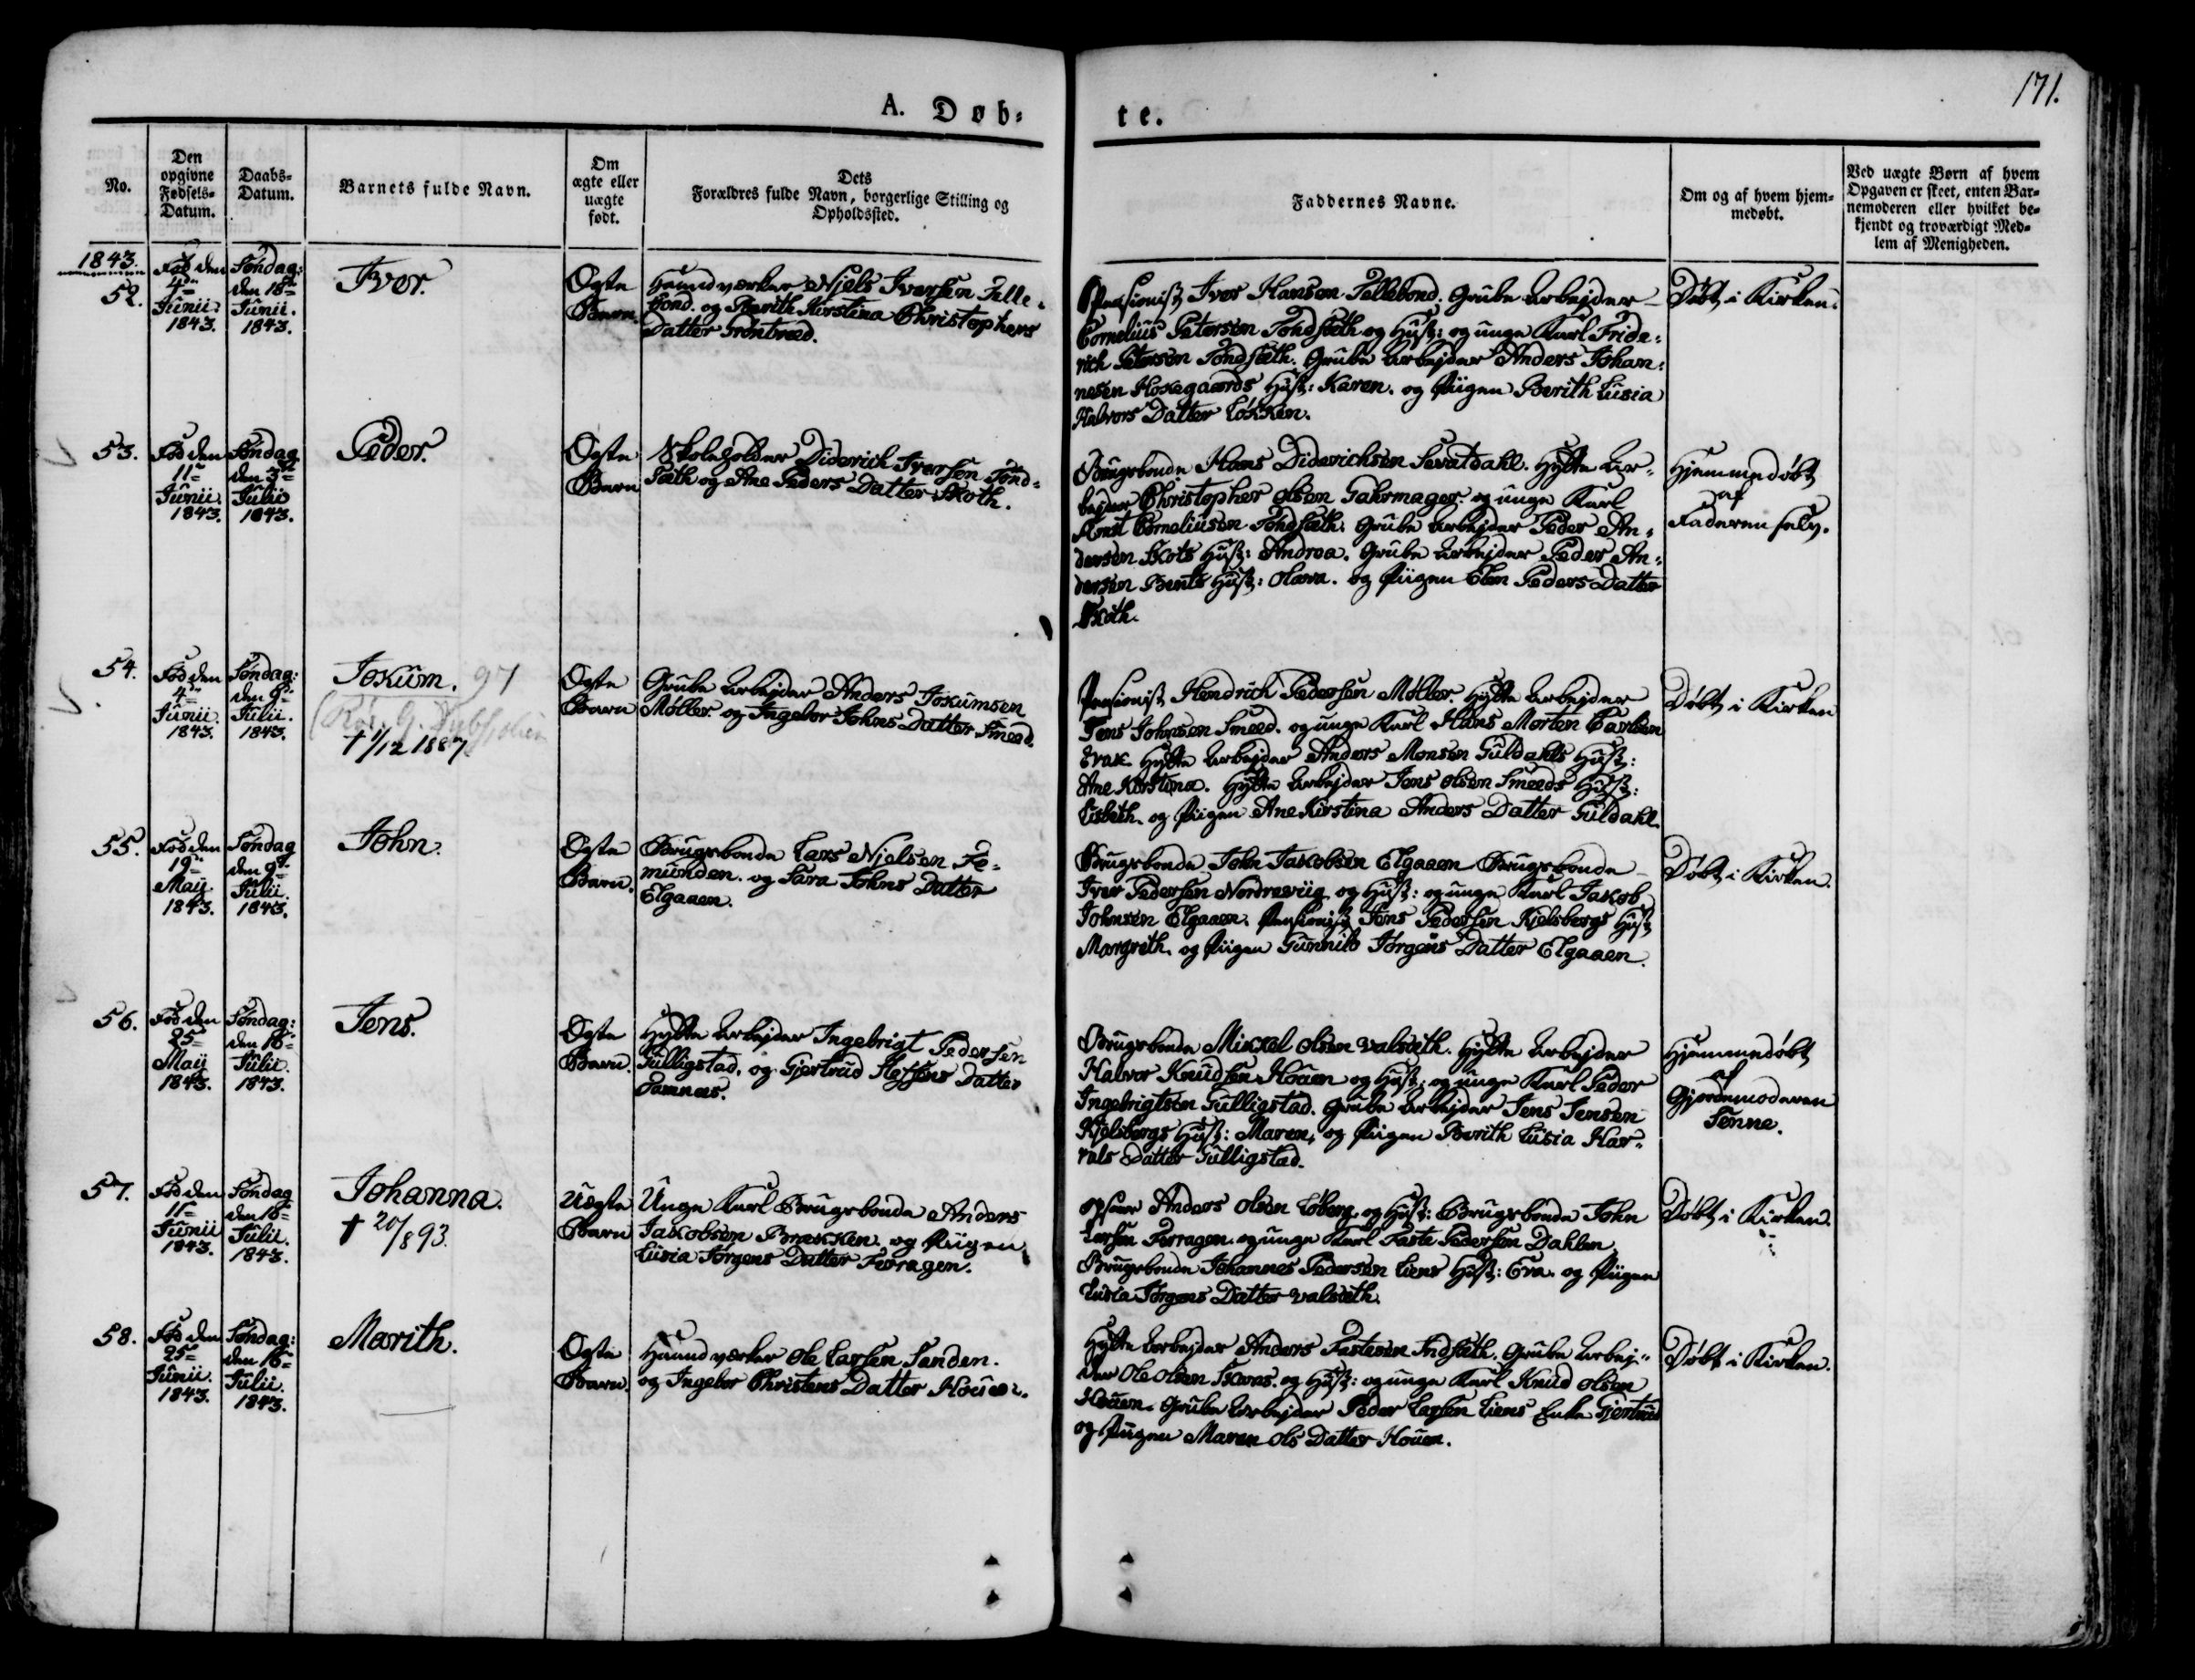 171.
A. Døb-
te.
No.
Den
opgivne
Fødsels-
Datum.
Daabs-
Datum.
Barnets fulde Navn.
Om
ægte eller
uægte
født.
Dets
Forældres fulde Navn, borgerlige Stilling og
Opholdssted.
Faddernes Navne.
Om og af hvem hjem-
medøbt.
Ved uægte Børn af hvem
Opgaven er skeet, enten Bar-
nemoderen eller hvilket be-
kjendt og troværdigt Med-
lem af Menigheden.
1843.
52.
Fød den
4de
Junii.
1843.
Søndag:
den 18de
Junii.
1843.
Iver.
Ægte
Barn.
Haandværker Njels Iversen Telle-
bond. og Berith Kirstina Christophers
Datter Trøntved.
Pensionist Iver Hansen Tellebond. Grube Arbejder
Cornelius Petersen Tondsæth og Hust: og unge Karl Fride-
rich Petersen Tondsæth. Grube Arbejder Anders Johan-
nesen Hosegaards Hust: Karen. og Piigen Berith Lusia
Halvors Datter Løkken.
Døbt i Kirken.
53.
Fød den
11te
Junii.
1843.
Søndag
den 3de
Julii
1843.
Peder.
Ægte
Barn
Skoleholder Diderich Iversen Tønd-
sæth og Ane Peders Datter Skoth.
Brugsbonde Hans Diderichsen Sevatdahl. Hytte Ar-
bejder Christopher Olsen Fahrmager. og unge Karl
Arnt Corneliusen Tøndsæth. Grube Arbejder Peder An-
dersen Skots Hust: Andrea. Grube Arbejder Peder An-
dersen Bents Hust: Olava. og Piigen Elen Peders Datter
Skoth.
Hjemmedøbt
af
Faderen selv.
54.
Fød den
4de
Junii.
1843.
Søndag:
den 9de
Julii.
1843.
Jokum. 97
(Rør. G.
† 1/12 1887
Ægte
Barn
Grube Arbejder Anders Jokumsen
Møller. og Ingebor Johns Datter Smeed.
Pensionist Hendrich Pedersen Møller. Hytte Arbejder
Jens Johnsen Smeed. og unge Karl Hans Morten Carlsen
Krak. Hytte Arbejder Anders Monsen Guldahls Hust:
Ane Kirstina. Hytte Arbejder Jens Olsen Smeeds Hust:
Lisbeth. og Piigen Ane Kirstina Anders Datter Guldahl.
Døbt i Kirken
55.
Fød den
19de
Maij.
1843.
Søndag
den 9de
Julii.
1843.
John.
Ægte
Barn.
Brugsbonde Lars Njelsen Fe-
munden. og Sara Johns Datter
Elgaaen.
Brugsbonde John Jakobsen Elgaaen Brugsbonde
Iver Pedersen Nordreviig og Hust: og unge Karl Jakob
Johnsen Elgaaen. Pensionist Jens Pedersen Kjelsbergs Hust
Margreth. og Piigen Gunnild Jørgens Datter Elgaaen.
Døbt i Kirken.
56.
Fød den
25de
Maij
1843.
Søndag:
den 16de
Julii.
1843.
Jens.
Ægte
Barn.
Hytte Arbejder Ingebrigt Pedersen
Gulligstad. og Gjertrud
Datter
Tamnæs.
Brugsbonde Mikkel Olsen Valsæth. Hytte Arbejder
Halvor Knudsen Houen og Hust: og unge Karl Peder
Ingebrigtsen Gulligstad. Grube Arbejder Jens Jensen
Kjelsbergs Hust: Maren, og Piigen Berith Lusia Har-
rals Datter Gulligstad.
Hjemmedøbt
af
Gjordemoderen
Tenne.
57.
Fød den
11te
Junii
1843.
Søndag
den 16de
Julii.
1843.
Johanna.
† 20/8 93.
Uægte
Barn
Unge Karl Brugsbonde Anders
Jakobsen Brækken. og Piigen
Lusia Jørgens Datter Ferragen.
Opsiner Anders Olsen Løberg. og Hust: Brugsbonde John
Larsen Ferragen og unge Karl Faste Pedersen Dahlen,
Brugsbonde Johannes Pedersen Liens Hust: Eva. og Piigen
Lusia Jørgens Datter Valsæth.
Døbt i Kirken.
58.
Fød den
25de
Junii.
1843.
Søndag:
den 16de
Julii.
1843.
Marith.
Ægte
Barn.
Haandværker Ole Larsen Sanden.
og Ingebor Christens Datter Houen.
Hytte Arbejder Anders Fastesen Indsæth. Grube Arbej-
der Ole Olsen
og Hust: og unge Karl Knud Olsen
Houen. Grube Arbejder Peder Larsen Liens Enke Gjertrud
og Piigen Maren Ols Datter Houen.
Døbt i Kirken.